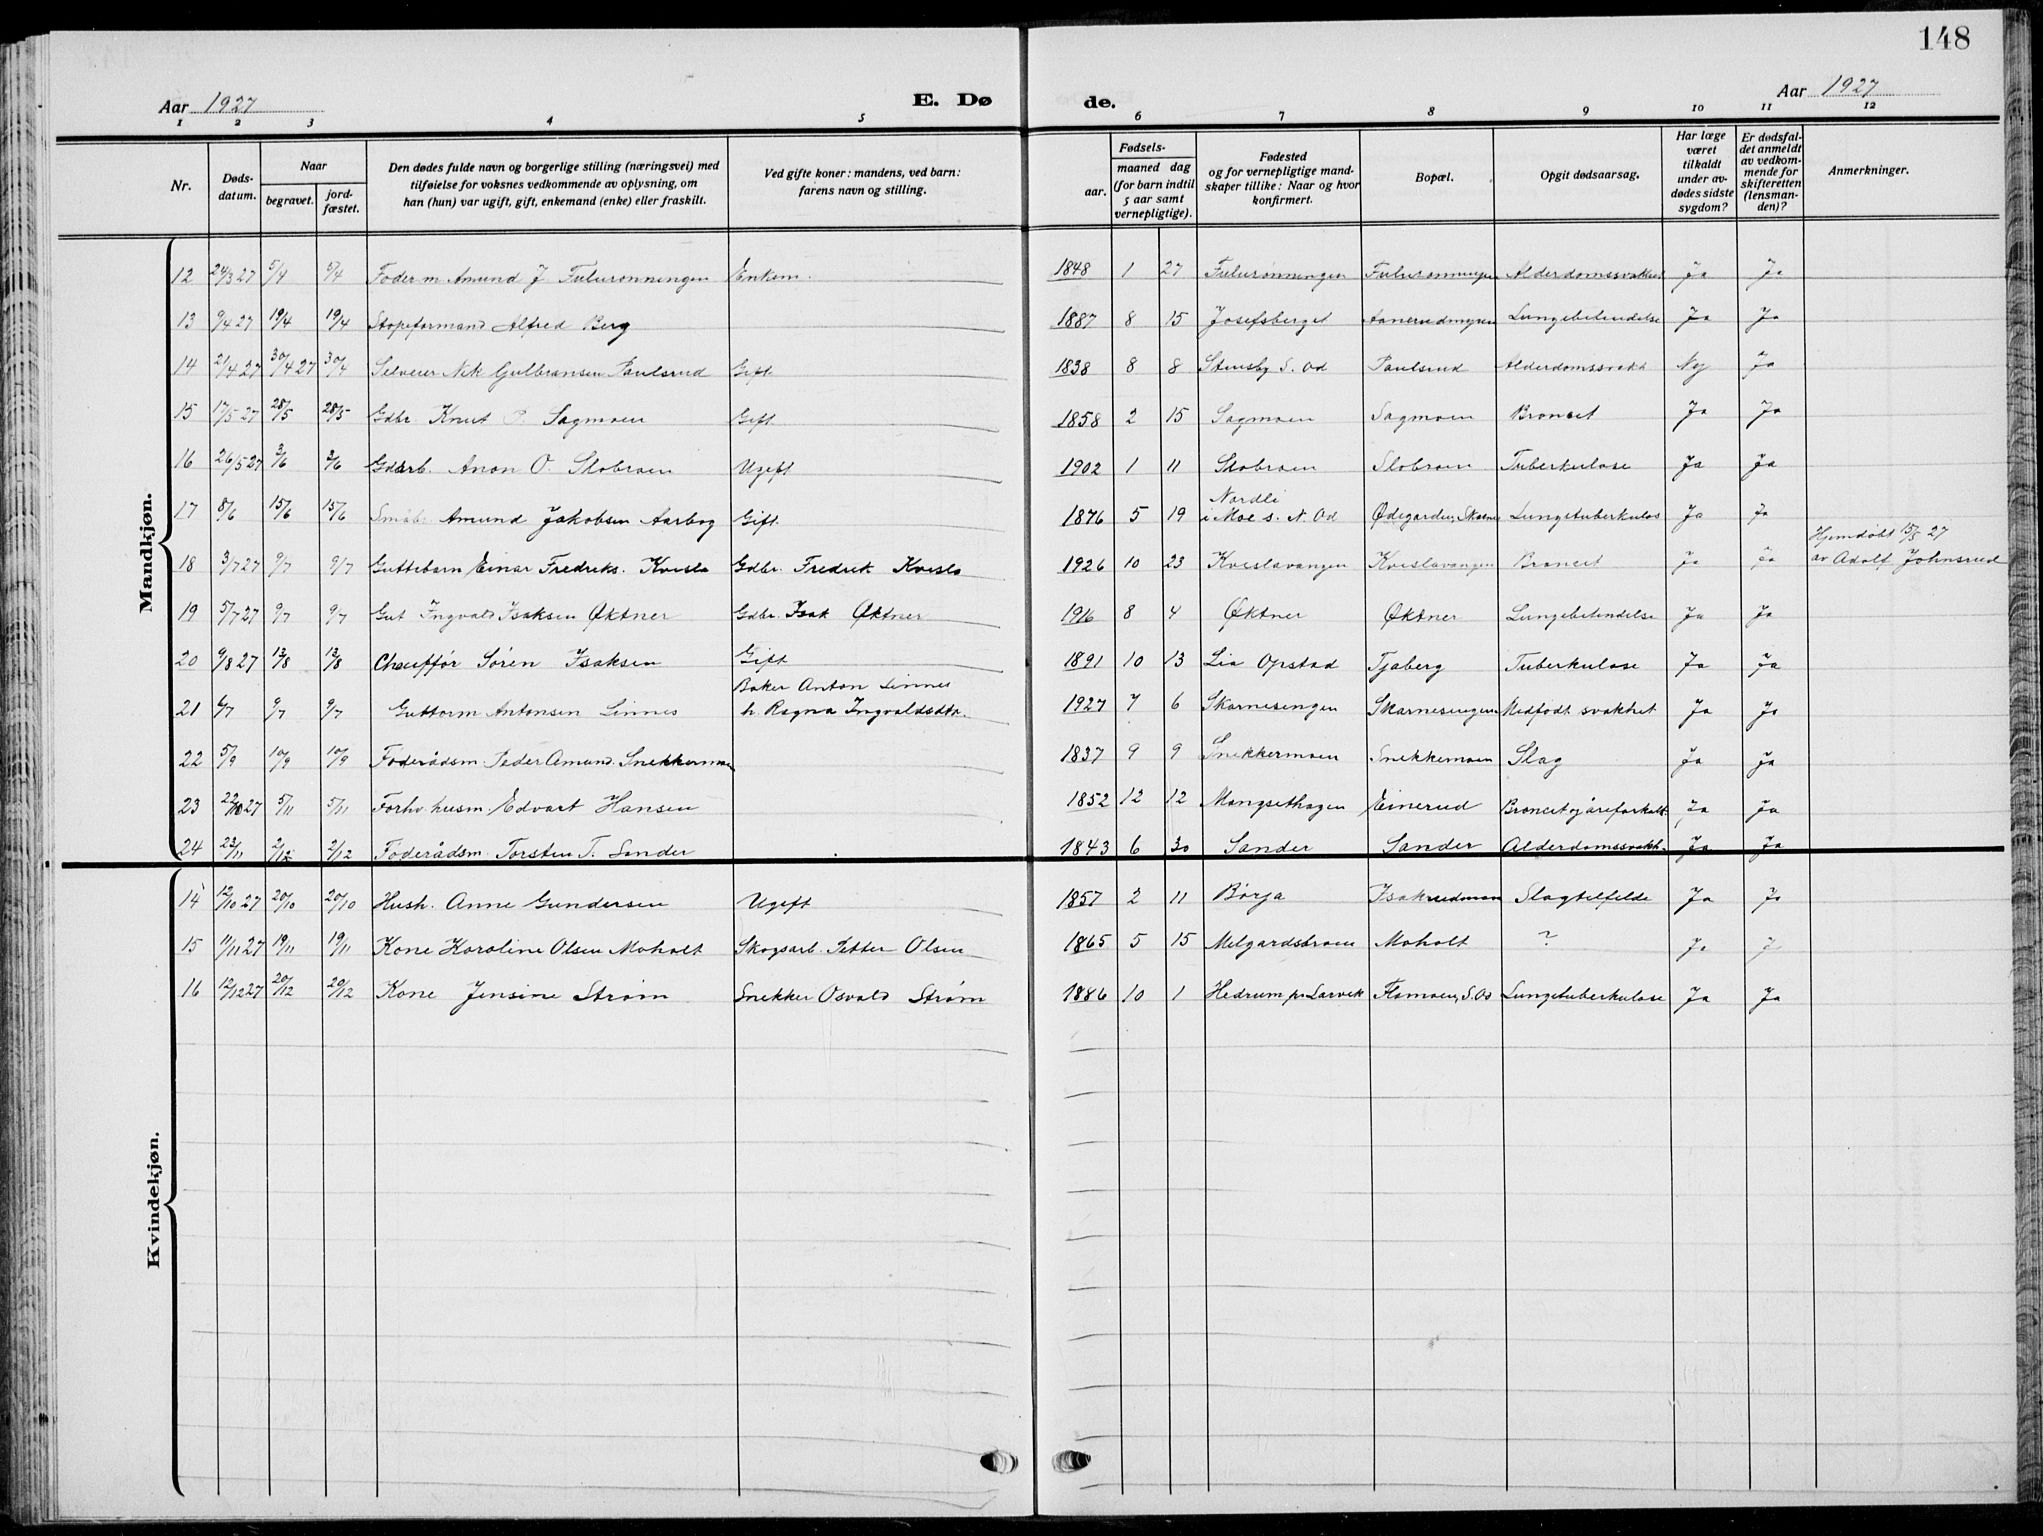 148
Aar 1927
E. Dø
de.
Aar 1927
1 2 3 4 5 6 7 8 9 10 11 12
Nr.
Døds-
datum.
Naar
begravet.
jord-
fæstet.
Den dødes fulde navn og borgerlige stilling (næringsvei) med
tilføielse for voksnes vedkommende av oplysning, om
han (hun) var ugift, gift, enkemand (enke) eller fraskilt.
Ved gifte koner: mandens, ved barn:
farens navn og stilling.
Fødsels-
aar.
maaned dag
(for barn indtil
5 aar samt
vernepligtige).
Fødested
og for vernepligtige mand-
skaper tillike: Naar og hvor
konfirmert.
Bopæl.
Opgit dødsaarsag.
Har læge
været
tilkaldt
under av-
dødes sidste
sygdom?
Er dødsfal-
det anmeldt
av vedkom-
mende for
skifteretten
(lensman-
den)?
Anmerkninger.
Mandkjøn.
12 24/3 27 5/4 5/4 Føderm Amund J. Fuluronningen Enkem. 1848 1 27 Fuluronningen Fuluronningen Alderdomssvakhet Ja Ja
13 9/4 27 19/4 19/4 Alfred Berg 1887 8 15 Josefsberget Aanerudmyren Lungebetendelse Ja Ja
14 21/4 27 30/4 27 30/4 Selveier Nik Gulbransen Paulsrud Gift 1838 8 8 Stensby S. Od Paulsrud Alderdomssvakh Nej Ja
15 17/5 27 28/5 28/5 Gdbr. Knut P. Sagmoen Gift 1858 2 15 Sagmoen Sagmoen Broncit Ja Ja
16 26/5 27 3/6 3/6 Gdarb. Anon O. Slobroen Ugift 1902 1 11 Slobroen Slobroen Tuberkulose Ja Ja
17 8/6 15/6 15/6 Småb. Amund Jakobsen Aarbog Gift 1876 5 19 Nordli
i Moe s. N. Od Ødegarden, Skarnes Lungetuberkulos Ja Ja
18 3/7 27 9/7 9/7 Guttebarn Einar Fredriks. Kvisla Gdbr. Fredrik Kvisla 1926 10 23 Kvislavangen Kvislavangen Broncit Ja Ja Hjemdøbt 15/5 27
av Adolf Johnsrud
19 5/7 27 9/7 9/7 Gut Ingvald Isaksen Øktner Gdbr. Isak Øktner 1916 8 4 Øktner Øktner Lungebetendelse Ja Ja
20 9/8 27 13/8 13/8 Chauffør Søren Isaksen Gift 1891 10 13 Lia Opstad Tjaberg Tuberkulose Ja Ja
21 6/7 9/7 9/7 Guttorm Antonsen Linnes Baker Anton Linnes
h. Ragna Ingvaldsdtr. 1927 7 6 Skarnesengen Skarnesengen Medfødt svakhet Ja Ja
22 5/9 10/9 10/9 Føderådsm. Peder Amund. Snekkermoen 1837 9 9 Snekkermoen Snekkemoen Slag Ja Ja
23 22/10 27 5/11 5/11 Forhv. husm. Edvart Hansen 1852 12 12 Mangsethagen Einerud Broncit og åreforkalk. Ja Ja
24 23/11 2/12 2/12 Føderådsm. Torsten T. Sander 1843 6 30 Sander Sander Alderdomssvakh. Ja Ja
Kvindekjøn.
14 12/10 27 20/10 20/10 Hush. Anne Gundersen Ugift 1857 2 11 Børja Isakrudmoen Slagtilfelde Ja Ja
15 11/11 27 19/11 19/11 Kone Karoline Olsen Moholt Skogsarb. Petter Olsen 1865 5 15 Melgardsbroen Moholt ? Ja J
16 12/12 27 20/12 20/12 Kone Jensine Strøm Snekker Osvald Strøm 1886 10 1 Hedrum pr Larvik Flomoen, S. Od Lungetuberkulose Ja Ja